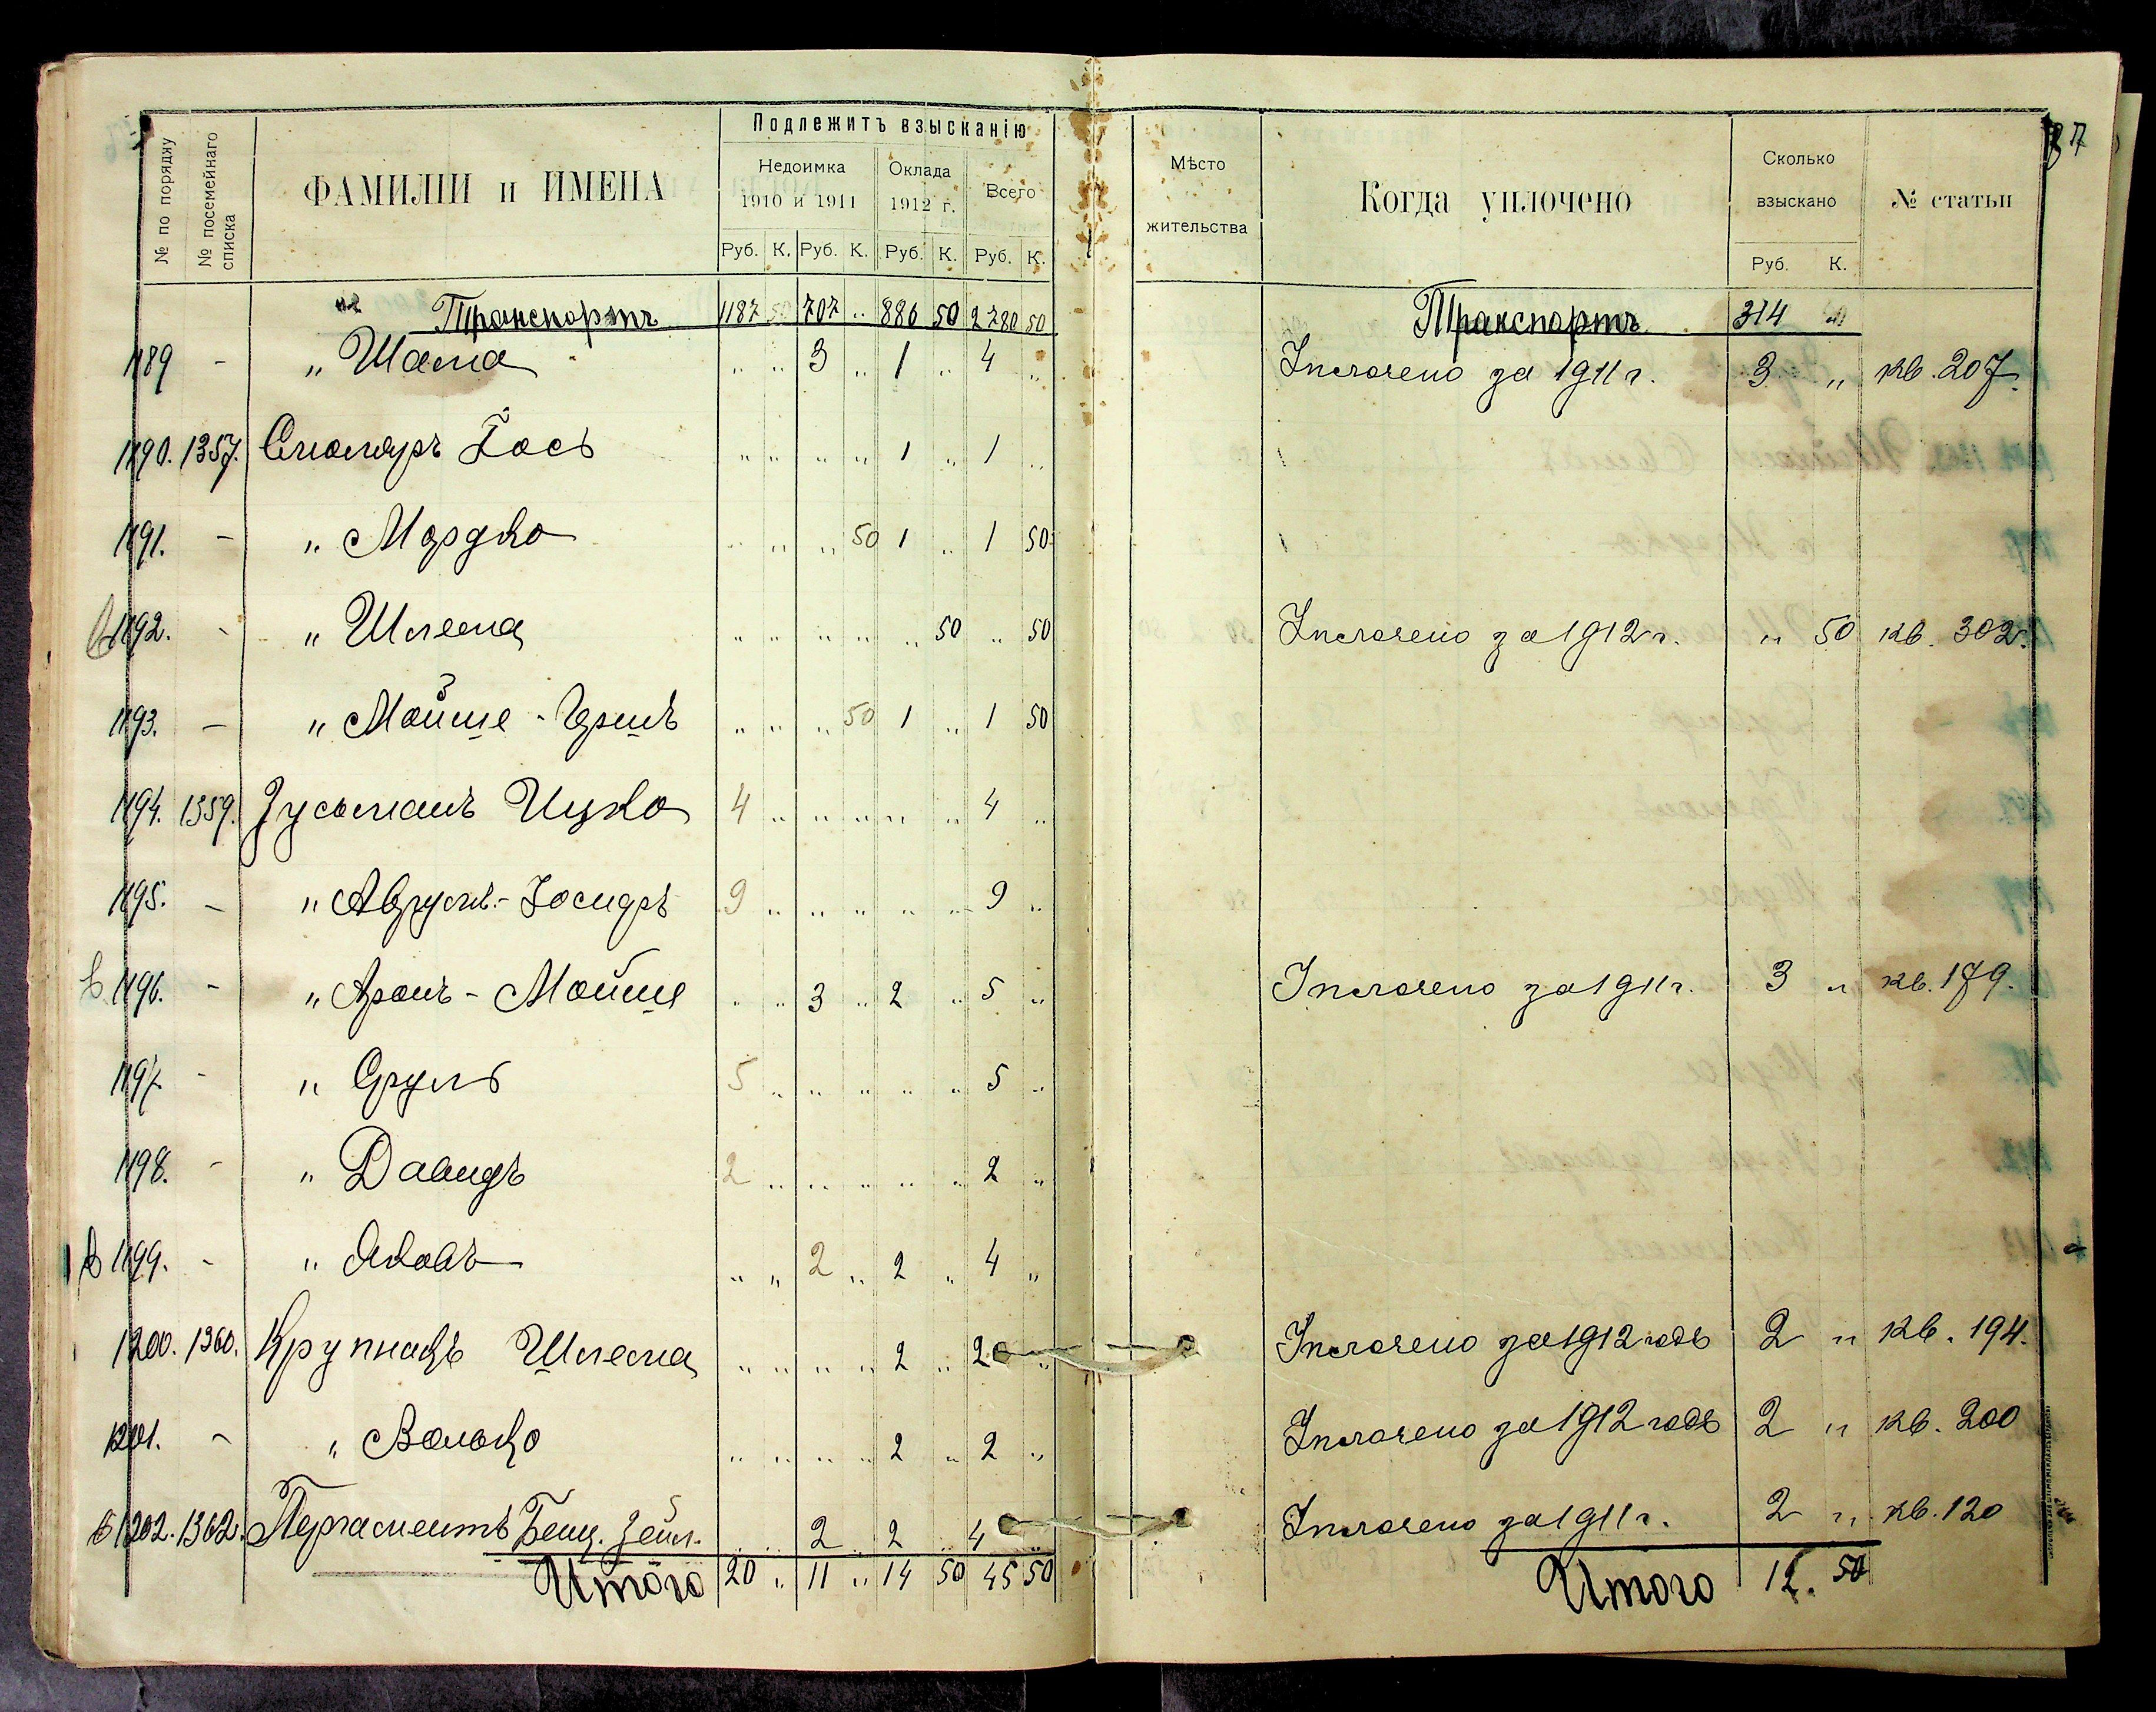 № по порядку
№ посемейнаго списка
ФАМИЛІИ и ИМЕНА
Подлежитъ взысканію
Недоимка 1910 и 1911
Оклада 1912 г.
Всего
Руб. К. Руб. К. Руб. К. Руб. К.
Мѣсто жительства
Когда уплочено
Сколько взыскано
Руб. К.
№ статьи
37
Транспортъ 1187 50 707 „ 886 50 2780 50 Транспортъ 314
1189 - „ Шама „ „ 3 „ 1 „ 4 „ Уплочено за 1911 г. 3 „ кв. 207.
1190. 1357. Іось „ „ „ „ 1 „ 1 „
1191. - „ Мордко „ „ „ 50 1 „ 1 50
1192. - „ Шлема „ „ „ „ „ 50 „ 50 Уплочено за 1912 г. „ 50 кв. 302.
1193. - „ Мойше-Гершъ „ „ „ 50 1 „ 1 50
1194. 1359. Зусьманъ Ицко 4 „ „ „ „ „ 4 „
1195. - „ Аврумъ-Іосифъ 9 „ „ „ „ „ 9 „
1196. - „ Аронъ-Мойше „ „ 3 „ 2 „ 5 „ Уплочено за 1911 г. 3 „ кв. 179.
1197. - „ Сруль 5 „ „ „ „ „ 5 „
1198. - „ Давидъ 2 „ „ „ „ „ 2 „
1199. - „ Яковъ „ „ 2 „ 2 „ 4 „
1200. 1360. Крупникъ Шлема „ „ „ „ 2 „ 2 „ Уплочено за 1912 годъ 2 „ кв. 194.
1201. - „ Волько „ „ „ „ 2 „ 2 „ Уплочено за 1912 годъ 2 „ кв. 200
1202. 1362. Пергаментъ Бенц. Зейл. „ „ 2 „ 2 „ 4 „ Уплочено за 1911 г. 2 „ кв. 120
Итого 20 „ 11 „ 14 50 45 50 Итого 12. 50